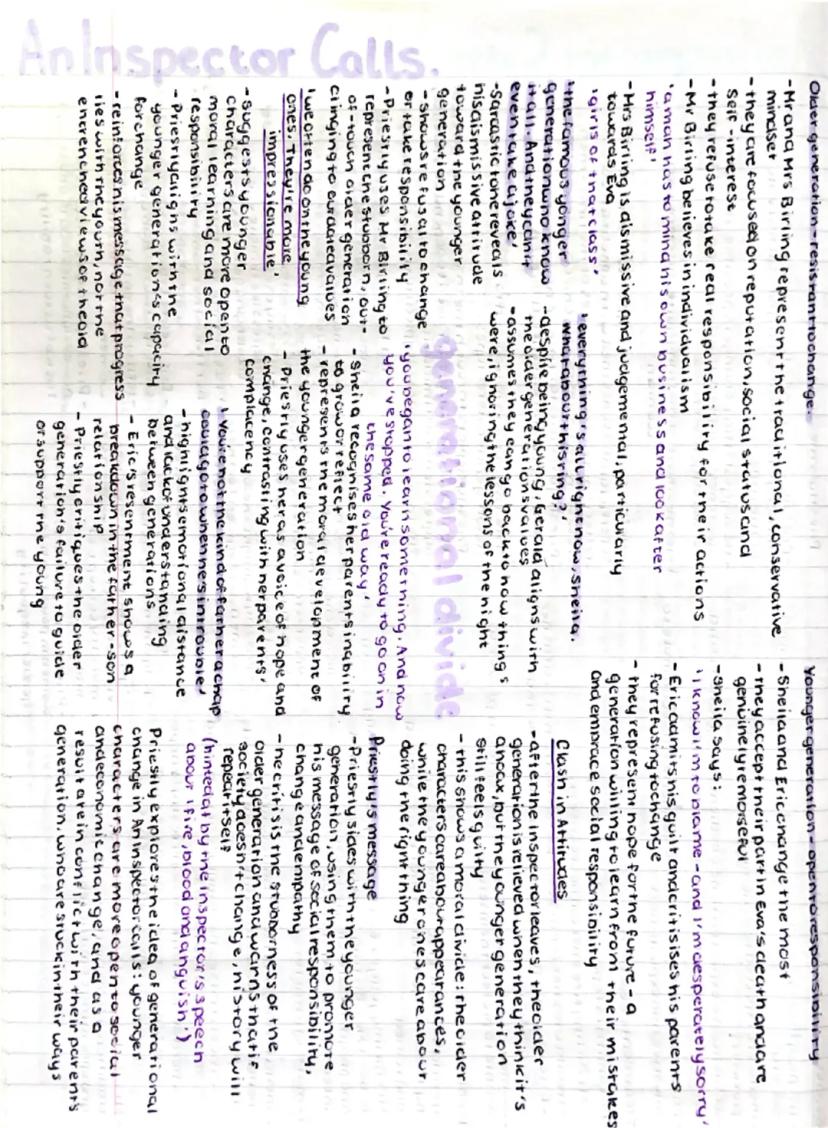 An Inspector Calls.
Older generation - resistant to change.
- Mr and Mrs Birling represent the traditional, conservative
mindset
- they are focused on reputation, social status and
self-interest
- they refuse to take real responsibility for their actions
- Mr Birling believes in individualism
'a man has to mind his own business and look after
himself'
- Mrs Birling is dismissive and judgemental, particularly
towards Eva
'girls of that class'
'the famous yonger
generation who know
it all. And they can't
even take a joke'
- sarcastic tone reveals
his dismissive attitude
toward the younger
generation
- shows refusal to change
or take responsibility
- Priestly uses Mr Birling to
represent the stubborn, out-
of-touch older generation
clinging to outdated values
'we often do on the young
ones. They're more
impressionable'
- suggests younger
characters are more open to
moral learning and social
responsibility
- Priestly aligns with the
younger generation's capacity
for change
- reinforces his message that progress
lies with the youth, not the
entrenched views of the old
'everything's all right now, Sheila.
What about this ring?'
- despite being young, Gerald aligns with
the older generations values
- assumes they can go back to how things
were, ignoring the lessons of the night
generational divide
'you began to learn something. And now
you've stopped. You're ready to go on in
the same old way'
- Sheila recognises her parents inability
to grow or reflect
- represents the moral development of
the younger generation
- Priestly uses her as a voice of hope and
change, contrasting with her parents'
complacency
'you're not the kind of father a chap
could go to when he's in trouble'
- highlights emotional distance
and lack of understanding
between generations
- Eric's resentment shows a
breakdown in the father-son
relationship
- Priestly critiques the older
generation's failure to guide
or support the young
Younger generation - open to responsibility
- Sheila and Eric change the most
- they accept their part in Eva's death and are
genuinely remorseful
- Sheila says:
'I know I'm to blame - and I'm desperately sorry'
- Eric admits his guilt and critisises his parents
for refusing to change
- they represent hope for the future - a
generation willing to learn from their mistakes
and embrace social responsibility
Clash in Attitudes
- after the Inspector leaves, the older
generation is relieved when they think it's
a hoax, but the younger generation
still feels guilty
- this shows a moral divide: the older
characters care about appearances,
while the younger ones care about
doing the right thing
Priestly's message
- Priestly sides with the younger
generation, using them to promote
his message of social responsibility,
change and empathy
- he critisis the stubborness of the
older generation and warns that if
society doesn't change, history will
repeat itself
(hinted at by the inspector's speech
about 'fire, blood and anguish')
Priestly explores the idea of generational
change in An Inspector Calls: younger
characters are more open to social
and economic change, and as a
result are in conflict with their parents
generation, who are stuck in their ways